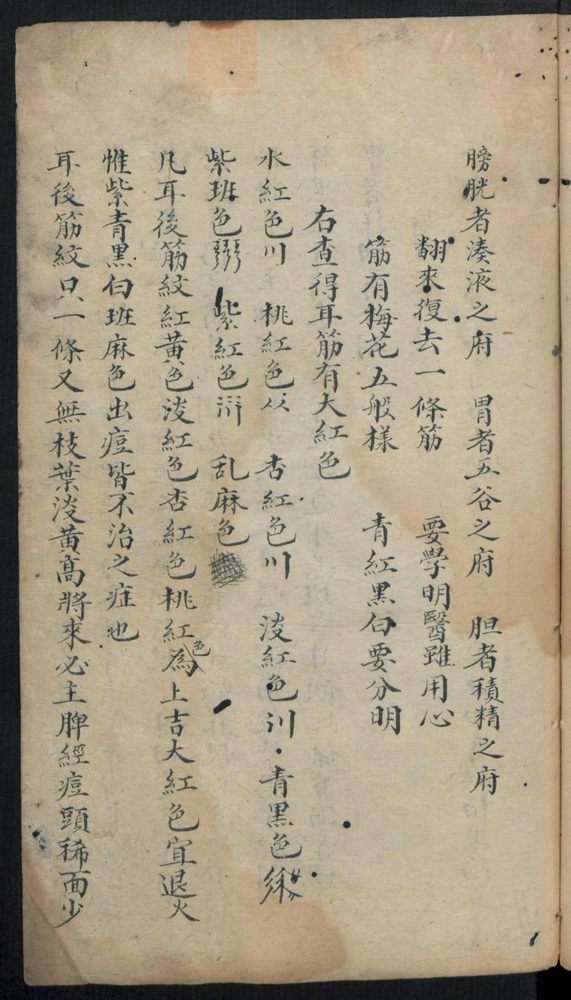 膀胱者湊液之府 胃者五谷之府 胆者積精之府
翻來復去一條筋 要學明醫雖用心
筋有梅花五般樣 青紅黑白要分明
右查得耳筋有大紅色
水紅色川 桃紅色从 杏紅色川 淡紅色 青黑色
紫班色 紫紅色 乱麻色
凡耳後筋紋紅黃色淡紅色杏紅色桃紅色為上吉大紅色宜退火
惟紫青黑白班麻色出痘皆不治之症也
耳後筋紋只一條又無枝葉淡黃高將來必主脾經痘頭稀面少